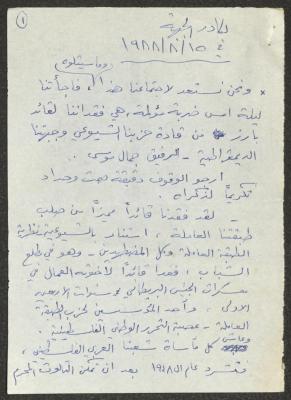 ١
لكادر الجبهة
في ١٥/٨/١٩٨٨
ونحن نستعد لاجتماعنا هذا، فاجأتنا
ليلة امس ضربة مؤلمة، هي فقداننا لقائد
بارز من قادة حزبنا الشيوعي وجبهتنا
الديمقراطية - الرفيق جمال موسى.
ارجو الوقوف دقيقة صمت وحداد
تكريماً لذكراه.
- لقد فقدنا قائداً مميزاً من صلب
طبقتنا العاملة، استنار بالشيوعية نظرية
الطبقة العاملة وكل المضطهدين - وهو في مطلع
الشباب، فغدا قائداً لأخوته العمال في
معسكرات الجيش البريطاني في سنوات الاربعين
الاولى، وأحد المؤسسين لحزب الطبقة
العاملة - عصبة التحرر الوطني الفلسطينية.
وعاش كل مأساة شعبنا العربي الفلسطيني،
فتشرد عام الـ ١٩٤٨ بعد ان تمكن الثالوث المجرم